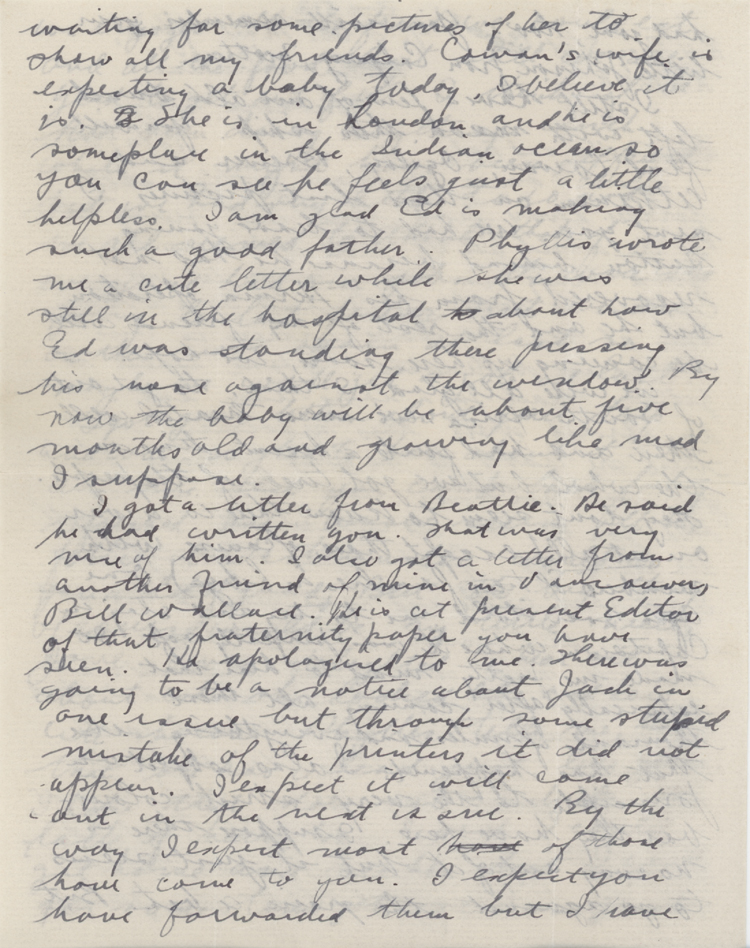 waiting for some pictures of her to
show all my friends. Cowan's wife is
expecting a baby today, I believe it
is. She is in London and he is
someplace in the Indian ocean so
you can see he feels just a little
helpless. I am glad Ed is making
such a good father. Phyllis wrote
me a cute letter while she was
still in the hospital to about how
Ed was standing there pressing
his nose against the window. By
now the baby will be about five
months old and growing like mad
I suppose.
I got a letter from Beattie. He said
he had written you. That was very
nice of him. I also got a letter from
another friend of mine in Vancouver,
Bill Wallace. He is at present Editor
of that fraternity paper you have
seen. He apologized to me. There was
going to be a notice about Jack in
one issue but through some stupid
mistake of the printers it did not
appear. I expect it will come
out in the next issue. By the
way I expect most have of those
have come to you. I expect you
have forwarded them but I have